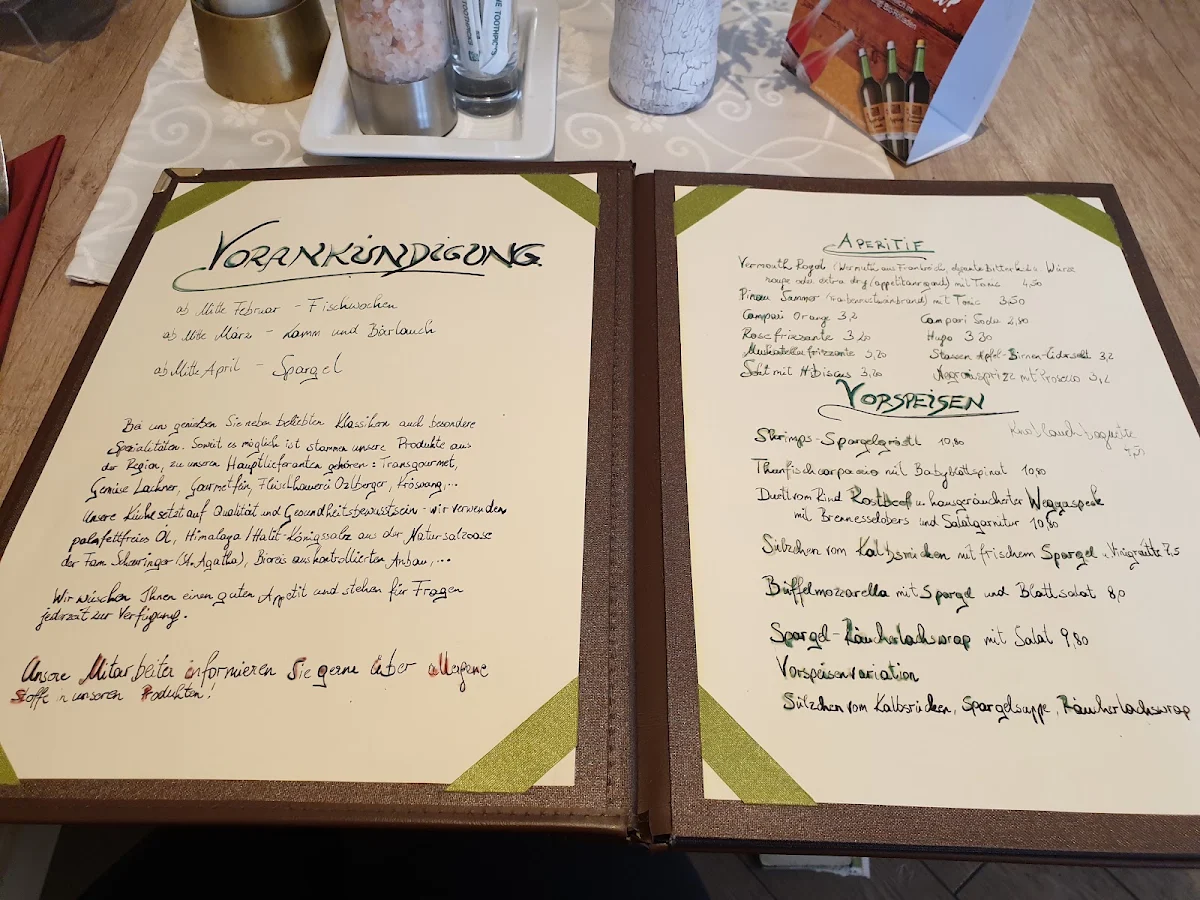 TOOTHPICS
VORANKÜNDIGUNG
ab Mitte Februar - Fischwochen
ab Mitte März - Lamm und Bärlauch
ab Mitte April - Spargel
Bei uns genießen Sie neben beliebten Klassikern auch besondere
Spezialitäten. Soweit es möglich ist stammen unsere Produkte aus
der Region, zu unseren Hauptlieferanten gehören: Transgourmet,
Gemüse Lachner, Gourmetfein, Fleischhauerei Ozlberger, Kröswang,...
Unsere Küche setzt auf Qualität und Gesundheitsbewusstsein - wir verwenden
palmfettfreies Öl, Himalaya/Halit-Königssalz aus der Natursalzoase
der Fam. Scheuringer (St. Agatha), Bioreis aus kontrolliertem Anbau,...
Wir wünschen Ihnen einen guten Appetit und stehen für Fragen
jederzeit zur Verfügung.
Unsere Mitarbeiter informieren Sie gerne über allergene
Stoffe in unseren Produkten!
APERITIF
Vermouth Royal (Wermuth aus Frankreich, elegante Bitterkeit & Würze
rouge oder extra dry (appetitanregend) mit Tonic 4,50
Pineau Sommer mit Tonic 3,50
Campari Orange 3,2 Campari Soda 2,80
Rosefrizzante 3,20 Hugo 3,20
Muskatellerfrizzante 3,20 Stassen Apfel-Birnen-Cidersekt 3,2
Sekt mit Hibiscus 3,20 mit Prosecco 3,2
VORSPEISEN
Knoblauchbaguette
Shrimps-Spargelgröstl 10,80
Thunfischcarpaccio mit Babyblattspinat 10,80
Duett vom Rind Rostbeef u hausgeräucherter Waguspeck
mit Brennesselobers und Salatgarnitur 10,80
Sülzchen vom Kalbsrücken mit frischem Spargel u Vinigrette 7,5
Büffelmozzarella mit Spargel und Blattsalat 8,0
Spargel-Räucherlachswrap mit Salat 9,80
Vorspeisenvariation
Sülzchen vom Kalbsrücken, Spargelsuppe, Räucherlachswrap